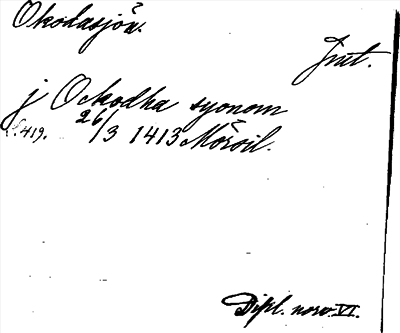 Okodasjön.
Jmt.
j Ockodha syonom
S. 419. 26/3 1413 Mörsil.
Dipl. norv. VI.